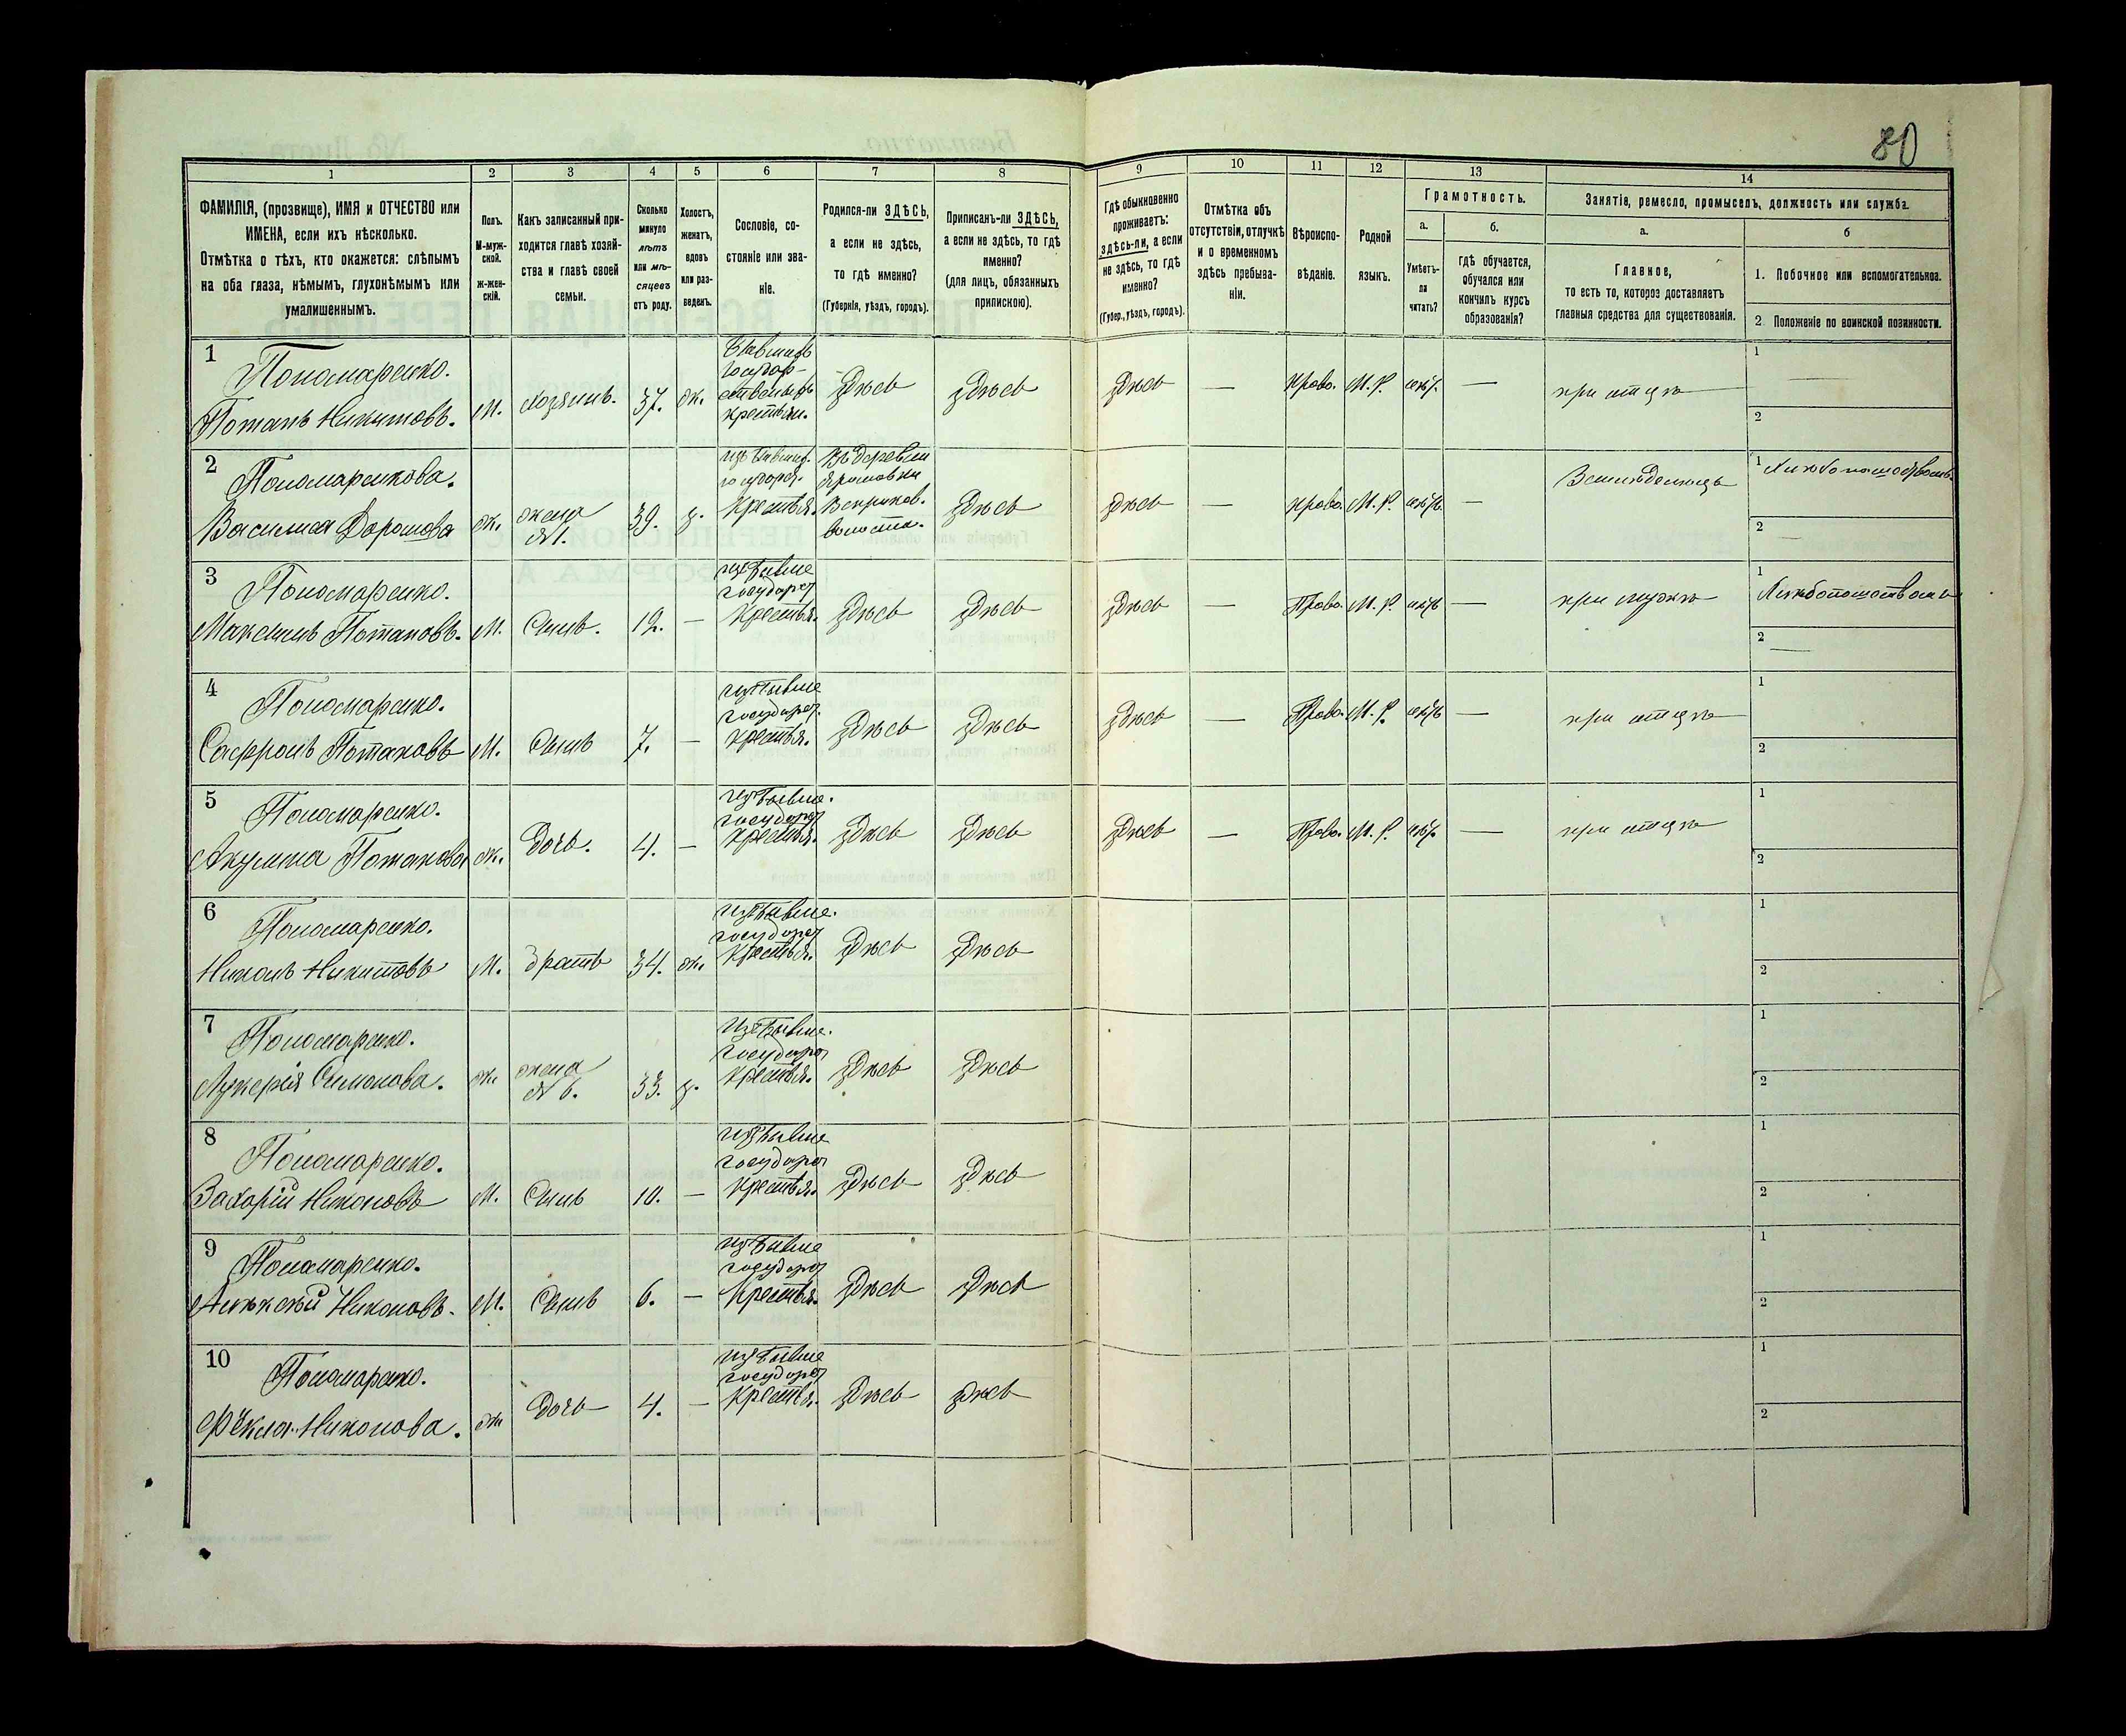 80
1
2
3
4
5
6
7
8
9
10
11
12
13
14
ФАМИЛІЯ, (прозвище), ИМЯ и ОТЧЕСТВО или
ИМЕНА, если ихъ нѣсколько.
Отмѣтка о тѣхъ, кто окажется: слѣпымъ
на оба глаза, нѣмымъ, глухонѣмымъ или
умалишеннымъ.
Полъ.
М-муж-
ской.
Ж-жен-
скій.
Какъ записанный при-
ходится главѣ хозяй-
ства и главѣ своей
семьи.
Сколько
минуло
лѣтъ
или мѣ-
сяцевъ
отъ роду.
Холостъ,
женатъ,
вдовъ
или раз-
веденъ.
Сословіе, со-
стояніе или зва-
ніе.
Родился-ли ЗДѢСЬ,
а если не здѣсь,
то гдѣ именно?
(Губернія, уѣздъ, городъ).
Приписанъ-ли ЗДѢСЬ,
а если не здѣсь, то гдѣ
именно?
(для лицъ, обязанныхъ
припискою).
Гдѣ обыкновенно
проживаетъ:
здѣсь-ли, а если
не здѣсь, то гдѣ
именно?
(Губер., уѣздъ, городъ).
Отмѣтка объ
отсутствіи, отлучкѣ
и о временномъ
здѣсь пребыва-
ніи.
Вѣроиспо-
вѣданіе.
Родной
языкъ.
Грамотность.
а.
Умѣетъ-
ли
читать?
б.
гдѣ обучается,
обучался или
кончилъ курсъ
образованія?
Занятіе, ремесло, промыселъ, должность или служба.
а.
Главное,
то есть то, которое доставляетъ
главныя средства для существованія.
б
1. Побочное или вспомогательное.
2. Положеніе по воинской повинности.
1
Пономаренко.
Потапъ Никитовъ.
М.
хозяинъ.
37.
ж.
государ-
крестьян.
здѣсь
здѣсь
здѣсь
—
М. Р.
—
при отцѣ
1
2
2
Пономаренкова.
Василиса
ж.
жена
№1.
39.
з.
Крестья.
Въ деревни
здѣсь
здѣсь
—
М. Р.
—
1
2
3
Пономаренко.
Максимъ Потаповъ.
М.
Сынъ.
12.
—
изъ бывше
государст
Крестья.
здѣсь
здѣсь
здѣсь
—
Право.
М. Р.
—
при мужѣ
1
2
4
Пономаренко.
Сафронъ Потаповъ
М.
Сынъ
7.
—
изъ бывше
государст.
крестья.
здѣсь
здѣсь
здѣсь
—
Право.
М. Р.
—
при отцѣ
1
2
5
Пономаренко.
Акулина Потапова
ж.
Дочь.
4.
—
изъ бывше.
государст
крестья.
здѣсь
здѣсь
здѣсь
—
Право.
М. Р.
—
при отцѣ
1
2
6
Пономаренко.
Никонъ Никитовъ
М.
братъ
34.
ж.
изъ бывше.
государст
Крестья.
здѣсь
здѣсь
1
2
7
Пономаренко.
Лукерія Симонова.
ж.
жена
№ 6.
33.
з.
Изъ бывше.
государст
крестья.
здѣсь
здѣсь
1
2
8
Пономаренко.
Захарій Никоновъ
М.
Сынъ
10.
—
изъ бывше
государст
Крестья.
здѣсь
здѣсь
1
2
9
Пономаренко.
Алѣксѣй Никоновъ.
М.
Сынъ
6.
—
изъ бывше
государст
Крестья.
здѣсь
здѣсь
1
2
10
Пономаренко.
Фёкла Никонова.
ж
Дочь
4.
—
изъ бывше
государст
Крестья.
здѣсь
здѣсь
1
2